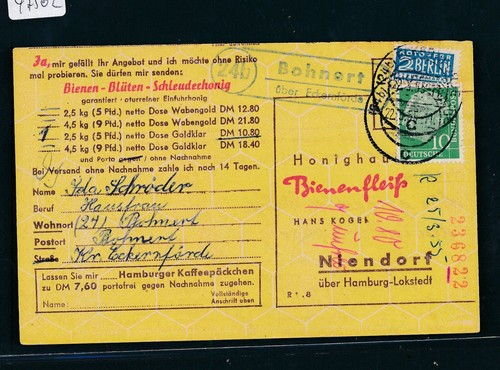 Ja, mir gefällt Ihr Angebot und ich möchte ohne Risiko
mal probieren. Sie dürfen mir senden:
Bienen-Blüten-Schleuderhonig
garantiert naturreiner Einfuhrhonig
2,5 kg (5 Pfd.) netto Dose Wabengold DM 12.80
4,5 kg (9 Pfd.) netto Dose Wabengold DM 21.80
1 2,5 kg (5 Pfd.) netto Dose Goldklar DM 10.80
4,5 kg (9 Pfd.) netto Dose Goldklar DM 18.40
und Porto gegen / ohne Nachnahme
Bei Versand ohne Nachnahme zahle ich nach 14 Tagen.
Name Ida Schröder
Beruf Hausfrau
Wohnort (24) Bohnert
Postort Bohnert
Straße Kr. Eckernförde
Lassen Sie mir Hamburger Kaffeepäckchen
zu DM 7,60 portofrei gegen Nachnahme zugehen.
Name:
Vollständige
Anschrift oben
24b
Bohnert
über Eckernförde
NOTOPFER
2 BERLIN
STEUERMARKE
10
DEUTSCHE
Honighaus
Bienenfleiß
HANS KOGE
Niendorf
über Hamburg-Lokstedt
R .8
236822